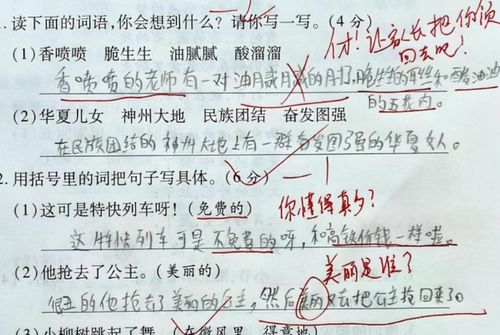 . 读下面的词语,你会想到什么?请你写一写。(4分)
付!让家长把你领回去吧!
(1)香喷喷 脆生生 油腻腻 酸溜溜
香喷喷的老师有一对油腻腻的月打,脆生生的耳丝和酸油油
的五花肉。
(2)华夏儿女 神州大地 民族团结 奋发图强
在民族团结的神州大地上有一群奋发图强的华夏女人。
2. 用括号里的词把句子写具体。(6分)
(1)这可是特快列车呀!(免费的)
你懂得真多?
这特快列车可是不免费的呀,和高铁价钱一样啦。
(2)他抢去了公主。(美丽的)
美丽是谁?
的他抢去了美丽的公主,然后美丽又去把公主抢回来了。
(3)小柳树跳起了舞。(在微风里 得意地)